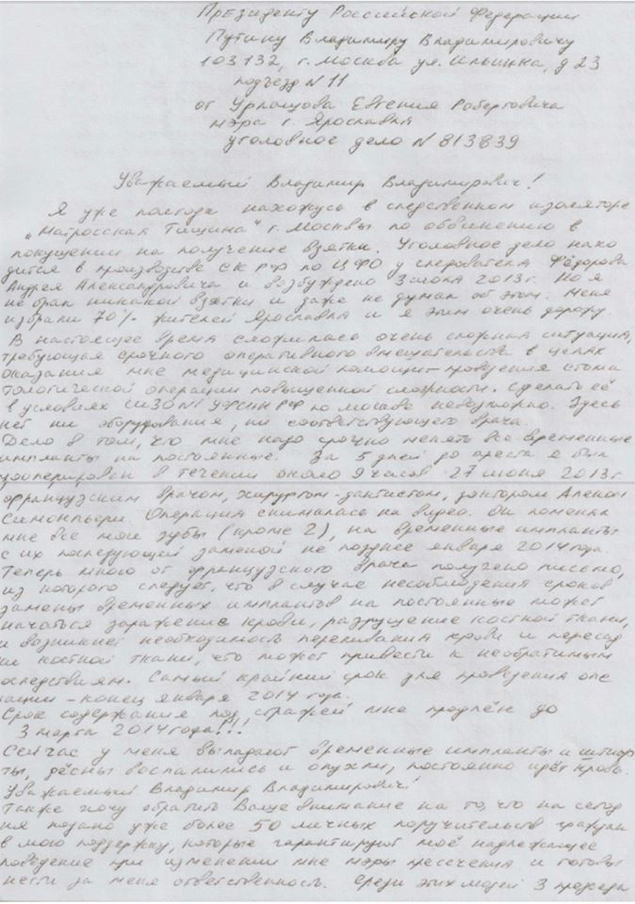 Президенту Российской Федерации
Путину Владимиру Владимировичу
103132, г. Москва ул. Ильинка, д 23
подъезд N 11
от Урлашова Евгения Робертовича
мэра г. Ярославля
уголовное дело N 813839
Уважаемый Владимир Владимирович!
Я уже полгода нахожусь в следственном изоляторе
"Матросская Тишина" г. Москвы по обвинению в
покушении на получение взятки. Уголовное дело нахо
дится в производстве СК РФ по ЦФО у следователя Фёдорова
Андрея Александровича и возбуждено 3 июля 2013г. Но я
не брал никакой взятки и даже не думал об этом. Меня
избрали 70% жителей Ярославля и я этим очень дорожу.
В настоящее время сложилась очень сложная ситуация,
требующая срочного оперативного вмешательства в целях
оказания мне медицинской помощи - проведения стома
тологической операции повышенной сложности. Сделать её
в условиях СИЗО УФСИН РФ по Москве невозможно. Здесь
нет ни оборудования, ни соответствующего врача.
Дело в том, что мне надо срочно менять все временные
импланты на постоянные. За 5 дней до ареста я был
прооперирован в течении около 9 часов 27 июня 2013г
французским врачом, хирургом-дантистом, доктором Аленом
Симонпьери. Операция снималась на видео. Он поменял
мне все мои зубы (кроме 2), на временные импланты
с их последующей заменой не позднее января 2014 года.
Теперь мною от французского врача получено письмо,
из которого следует, что в случае несоблюдения сроков
замены временных имплантов на постоянные может
начаться заражение крови, разрушение костной ткани,
и возникнет необходимость переливания крови и пересад
ки костной ткани, что может привести к необратимым
последствиям. Самый крайний срок для проведения опе
рации - конец января 2014 года.
Срок содержания под стражей мне продлён до
3 марта 2014 года!!!
Сейчас у меня выпадают временные импланты и штиф
ты, дёсны воспалились и опухли, постоянно идёт кровь.
Уважаемый Владимир Владимирович!
Также хочу обратить Ваше внимание на то, что на сегод
ня подано уже более 50 личных поручительств граждан
в мою поддержку, которые гарантируют моё надлежащее
поведение при изменении мне меры пресечения и готовы
нести за меня ответственность. Среди этих людей 3